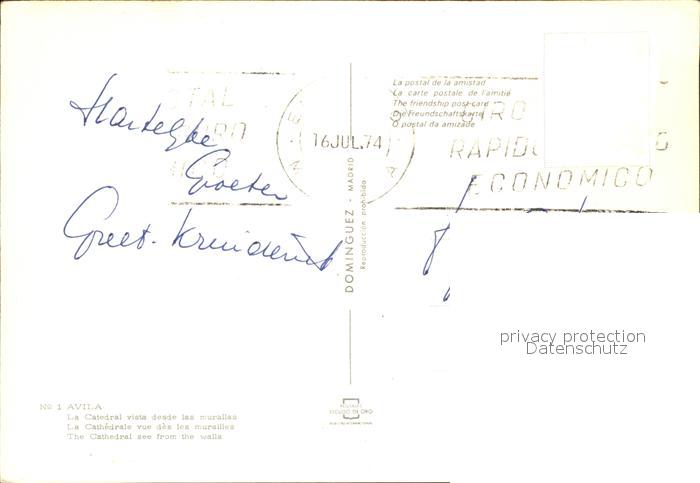 La postal de la amistad
La carte postale de l'amitié
The friendship post-card
Die Freundschaftskarte
O postal da amizade
16 JUL. 74
GIRO POSTAL
RAPIDO
ECONOMICO
Hartelijke
Groeten
Greet
DOMINGUEZ - MADRID
Reproducción prohibida
privacy protection
Datenschutz
Nº 1 AVILA
La Catedral vista desde las murallas
La Cathédrale vue dès les murailles
The Cathedral see from the walls
POSTALES
ESCUDO DE ORO